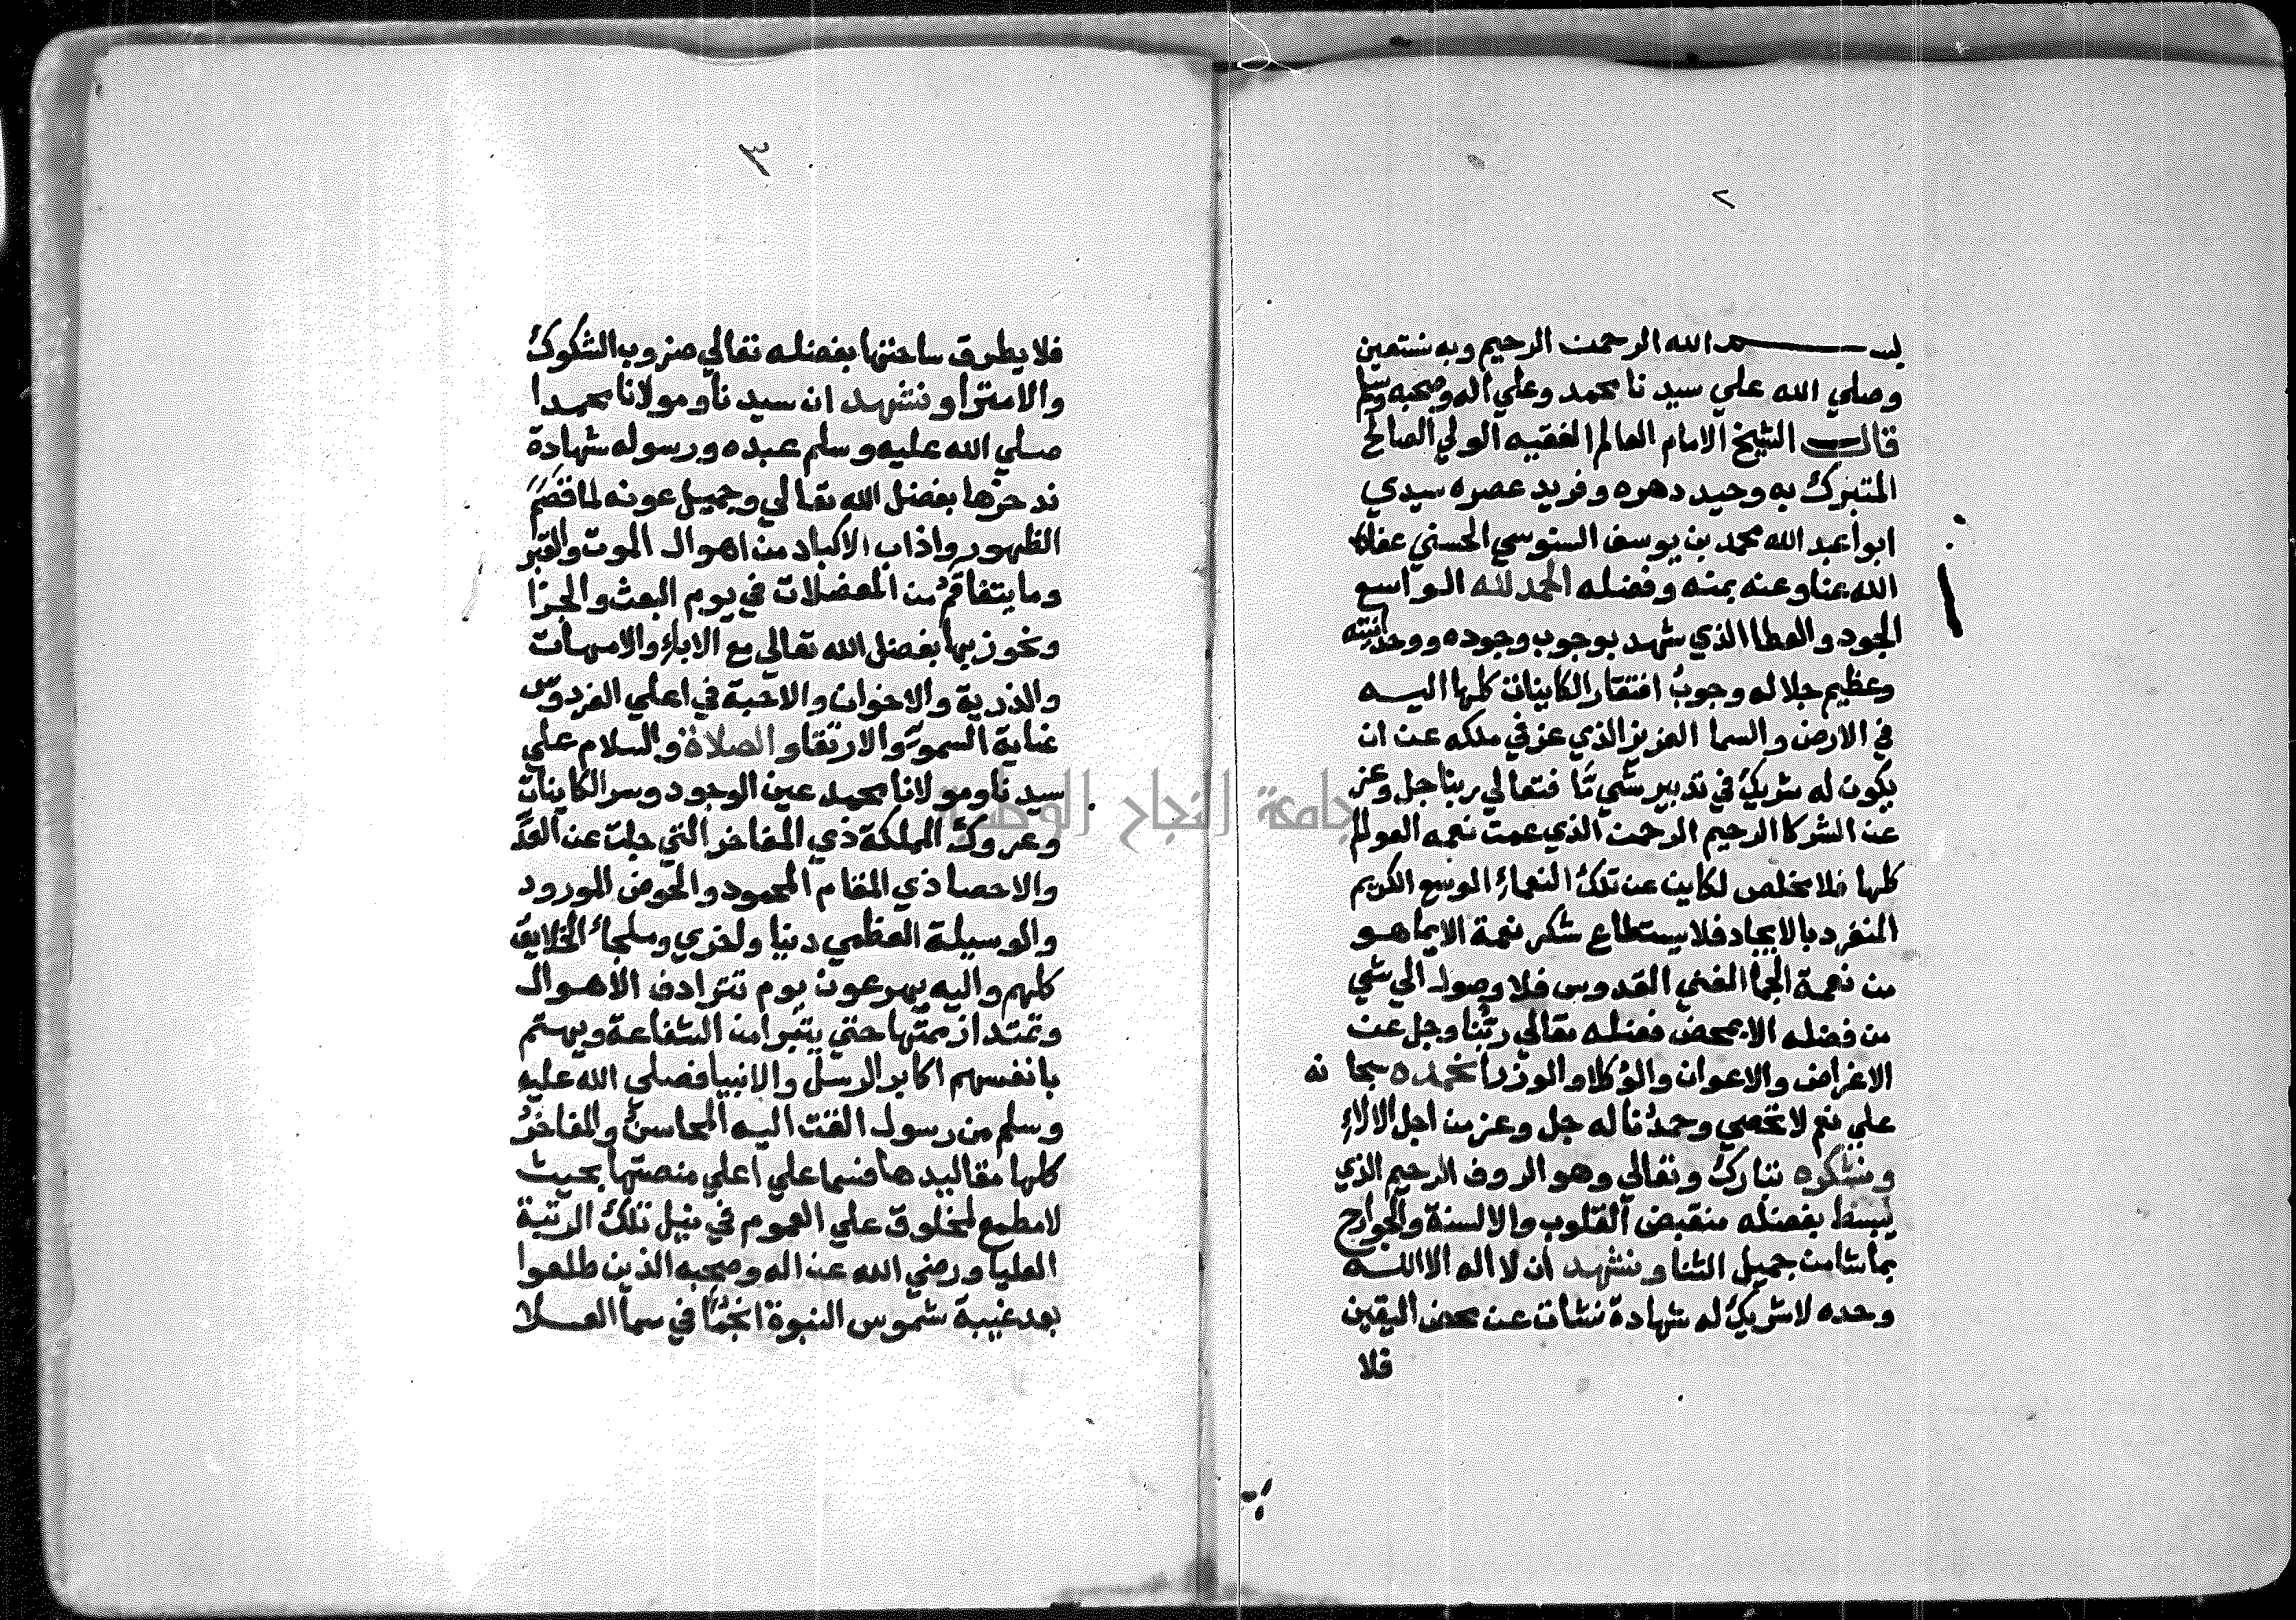 ٢
بسم الله الرحمن الرحيم وبه نستعين
وصلي الله علي سيدنا محمد وعلي اله وصحبه وسلم
قال الشيخ الامام العالم الفقيه الولي الصالح
المتبرك به وحيد دهره وفريد عصره سيدي
ابوا عبد الله محمد بن يوسف السنوسي الحسني عفا
الله عنا وعنه بمنه وفضله الحمد لله الواسع
الجود والعطا الذي شهد بوجوب وجوده ووحدانيته
وعظيم جلاله وجوب افتقار الكاينات كلها اليه
في الارض والسما العزيز الذي عز في ملكه عن ان
يكون له شريك في تدبير شي ما فتعالي ربنا جل وعز
عن الشركا الرحيم الرحمن الذي عمت نعمه العوالم
كلها فلا مخلص لكاين عن تلك النعماء الموسع الكريم
المنفرد بالايجاد فلا يستطاع شكر نعمة الا بما هو
من نعمة الجما الغني القدوس فلا وصول الي شي
من فضله الا بمحض فضله تعالي ربنا وجل عن
الاغراض والاعوان والوكلا والوزرا نحمده سبحانه
علي نعم لا تحصي وحمدنا له جل وعز من اجل الالاء
ونشكره تبارك وتعالي وهو الروف الرحيم الذي
يبسط بفضله منقبض القلوب والالسنة والجوارح
بما شا من جميل الثنا ونشهد ان لا اله الا الله
وحده لا شريك له شهادة نشات عن محض اليقين
فلا
٣
فلا يطرق ساحتها بفضله تعالي ضروب الشكوك
والامترا ونشهد ان سيدنا ومولانا محمدا
صلي الله عليه وسلم عبده ورسوله شهادة
ندخرها بفضل الله تعالي وجميل عونه لما قصم
الظهور واذاب الاكباد من اهوال الموت والقبر
وما يتفاقم من المعضلات في يوم البعث والجزا
ونحوز بها بفضل الله تعالي مع الاباء والامهات
والذرية والاخوان والاحبة في اعلي الفردوس
غاية السمو والارتقا والصلاة والسلام علي
سيدنا ومولانا محمد عين الوجود وسر الكاينات
وعروك المملكة ذي المفاخر التي جلت عن العد
والاحصا ذي المقام المحمود والحوض المورود
والوسيلة العظمي دنيا واخري وملجاء الخلايق
كلهم واليه يهرعون يوم تترادف الاهوال
وتمتد ازمتها حتي يتبرا من الشفاعة ويهتم
بانفسهم اكابر الرسل والانبيا فصلي الله عليه
وسلم من رسول القت اليه المحاسن والمفاخر
كلها مقاليدها فسما علي اعلي منصتها بحيث
لا مطمع لمخلوق علي العموم في نيل تلك الرتبة
العليا ورضي الله عن اله وصحبه الذين طلعوا
بعد غيبة شموس النبوة انجما في سما العلا
جامعة النجاح الوطنية